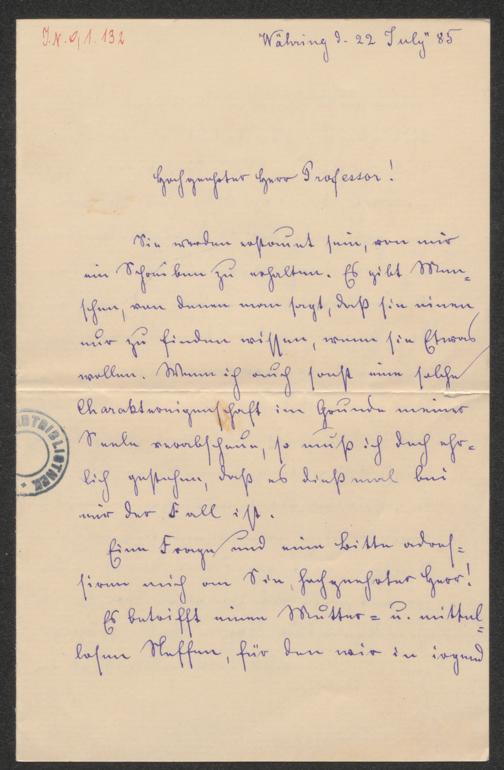 I.N. 91.132
Währing d. 22 July 85
Hochgeehrter Herr Professor!
Sie werden erstaunt sein, von mir
ein Schreiben zu erhalten. Es gibt Men-
schen, von denen man sagt, daß sie einen
nur zu finden wissen, wenn sie Etwas
wollen. Wenn ich auch sonst eine solche
Charaktereigenschaft im Grunde meiner
Seele verabscheue, so muß ich doch ehr-
lich gestehen, daß es dießmal bei
mir der Fall ist.
Eine Frage und eine Bitte adres-
siren mich an Sie, hochgeehrter Herr!
Es betrifft einen Mutter= u. mittel-
losen Neffen, für den wir in irgend
STADTBIBLIOTHEK